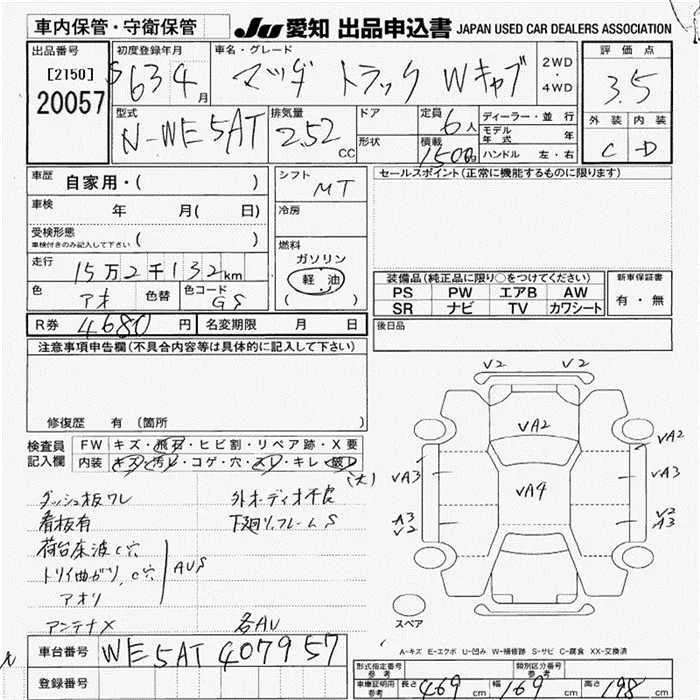 車内保管・守衛保管 JU 愛知 出品申込書 JAPAN USED CAR DEALERS ASSOCIATION
出品番号 初度登録年月 車名・グレード 2WD・4WD 評価点
[2150] S63 4月 マツダ トラック Wキャブ 3.5
20057
型式 排気量 ドア 定員 ディーラー・並行 外装 内装
N-WE5AT 2.52 CC 6人 モデル年式 年 C -D
形状 積載 1500 kg ハンドル 左・右
車歴 自家用・( ) シフト MT セールスポイント(正常に機能するものに限ります)
車検 年 月( 日) 冷房
受検形態
車検付きのみ記入して下さい ( )
燃料
走行 15万2千132km ガソリン
軽・油
( )
色 アオ 色替 色コード GS
装備品(純正品に限り○をつけてください) 新車保証書
PS PW エアB AW 有・無
SR ナビ TV カワシート
R券 4680円 名変期限 月 日 後日品
注意事項申告欄(不具合内容等は具体的に記入して下さい)
修復歴 有〔箇所 〕
検査員 FW キズ・飛石・ヒビ割・リペア跡・X要
記入欄 内装 キズ・汚レ・コゲ・穴・スレ・キレ・破レ
(大)
ダッシュ板ワレ 外オーディオ不良
看板有 下廻り、フレームS
荷台床波C穴
トリイ曲ガリ、C穴 AUS
アオリ
アンテナX 各AU
V2 V2
VA2
VA2
VA3 VA4 VA3
A3 V2
V2 A3
スペア
A-キズ E-エクボ U-凹み W-補修跡 S-サビ C-腐食 XX-交換済
車台番号 WE5AT 407957
登録番号
形式指定番号 参考 類別区分番号 参考
車庫証明用 参考 長さ 469cm 幅 169cm 高さ 198cm